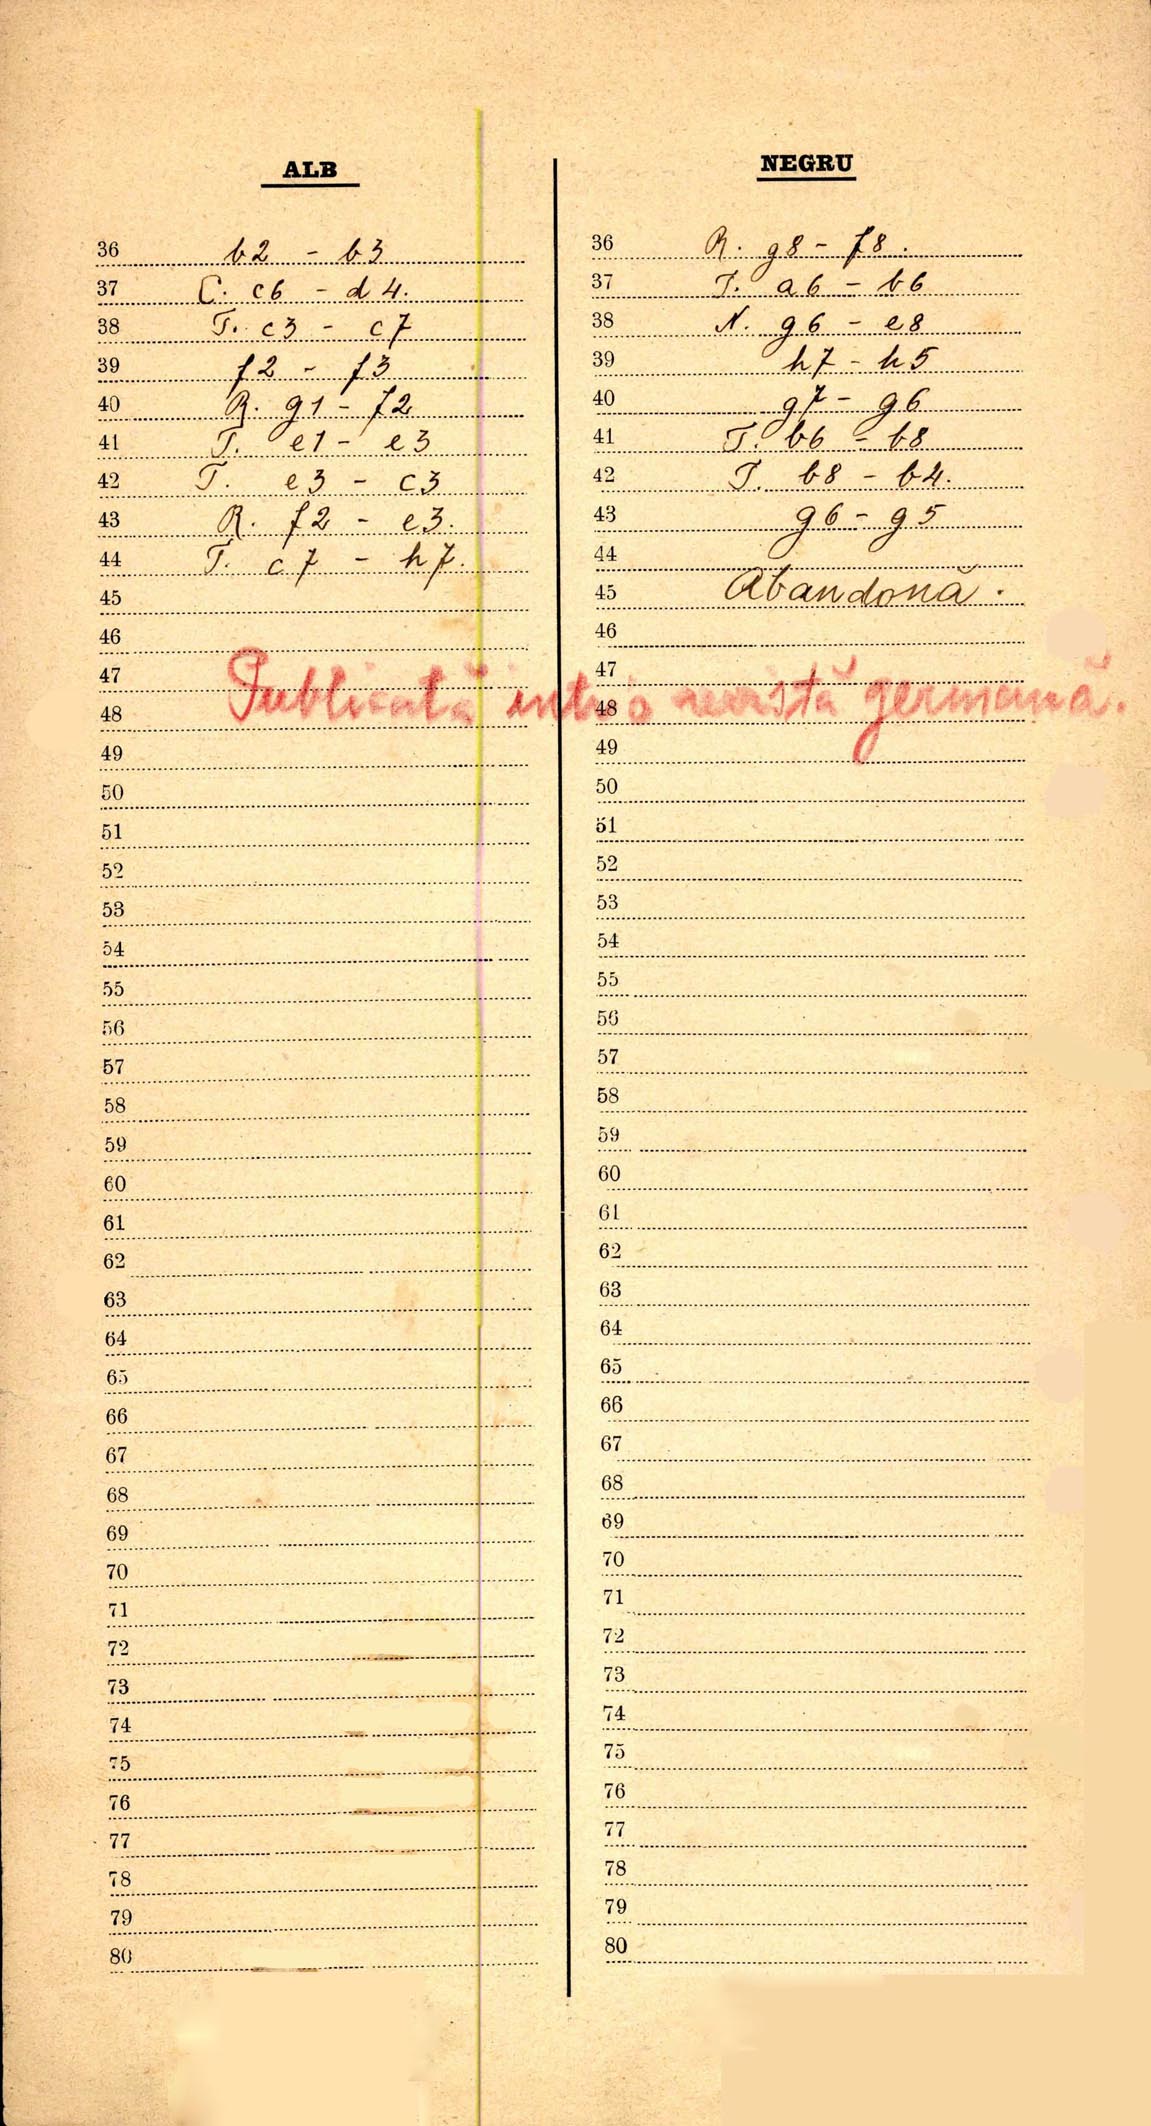 ALB NEGRU
36 b2 - b3 36 R. g8 - f8.
37 C. c6 - d4. 37 T. a6 - b6
38 T. c3 - c7 38 N. g6 - e8
39 f2 - f3 39 h7 - h5
40 R. g1 - f2 40 g7 - g6
41 T. e1 - e3 41 T. b6 - b8
42 T. e3 - c3 42 T. b8 - b4.
43 R. f2 - e3. 43 g6 - g5
44 T. c7 - h7. 44
45 45 Abandonă.
46 46
47 47
Publicată intr'o revistă germană.
48 48
49 49
50 50
51 51
52 52
53 53
54 54
55 55
56 56
57 57
58 58
59 59
60 60
61 61
62 62
63 63
64 64
65 65
66 66
67 67
68 68
69 69
70 70
71 71
72 72
73 73
74 74
75 75
76 76
77 77
78 78
79 79
80 80